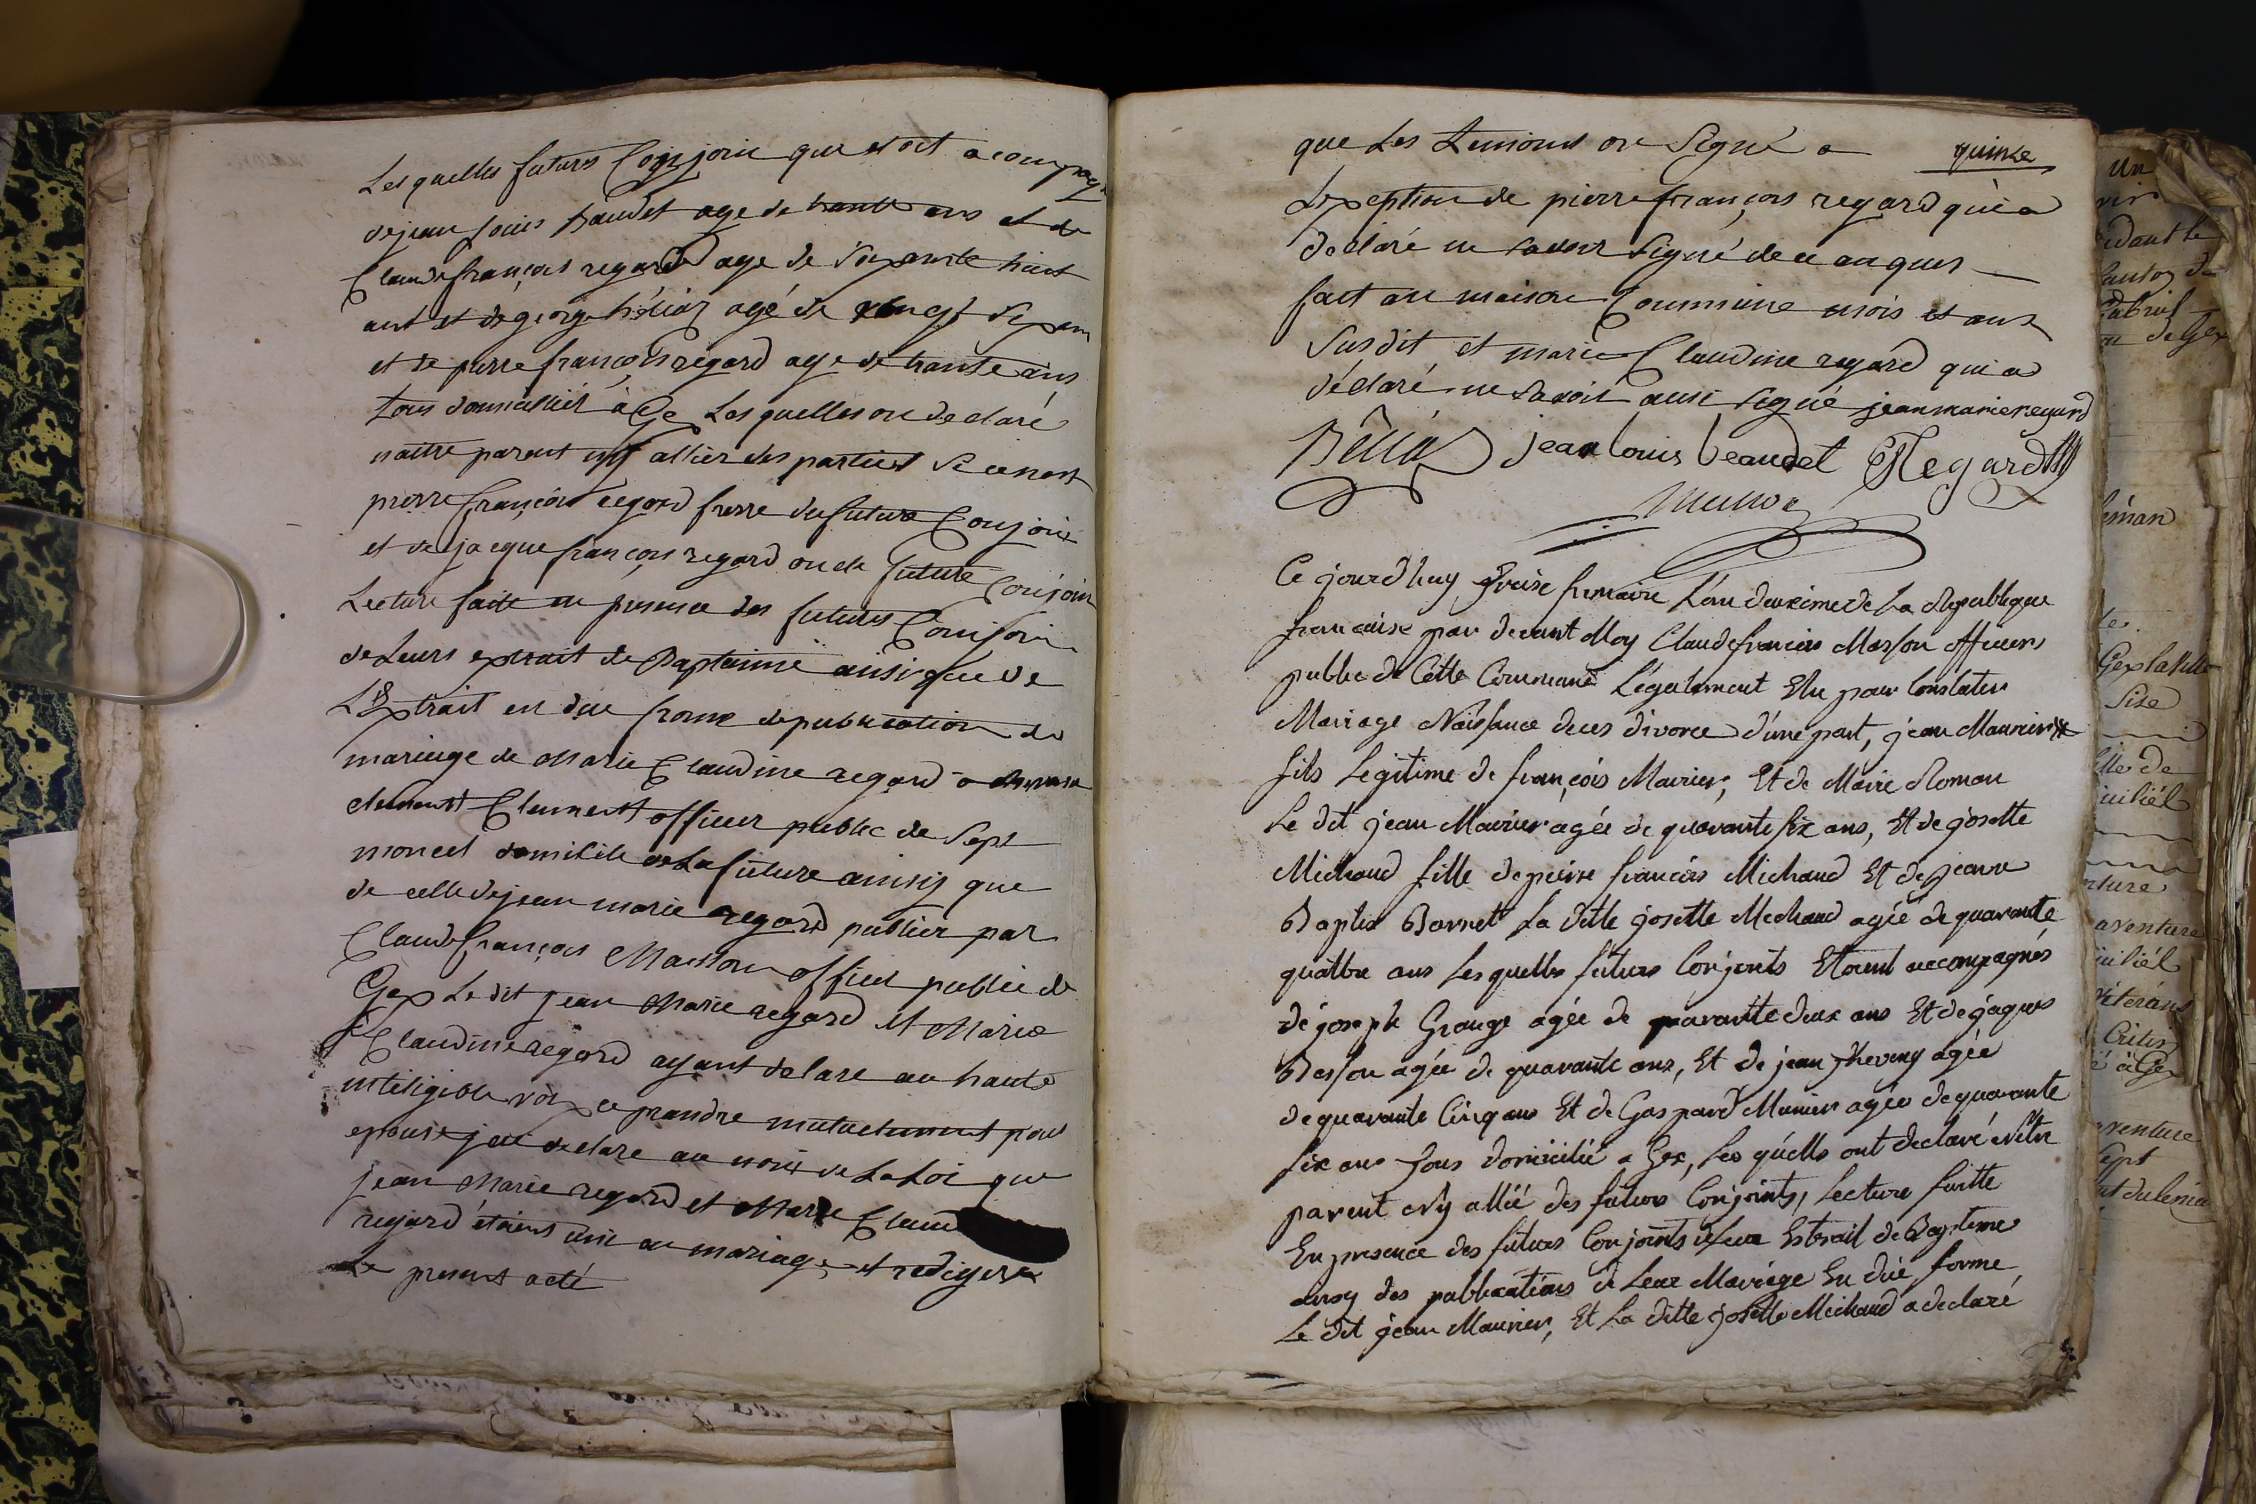 Les quelles futurs Conjoin que etoit acompagn
de jean louis baudet age de trante ans et de
Claude françois regard age de soixante huit
ant et de george béliaz agé de vengt six an
et de pierre françois regard age de trante ans
tous domicillié à Gex Les quelles on declaré
naitre parent ny allier des parties si ce nest
pierre françois regard frere du future Conjoin
et de jacque françois regard oncle future Conjoin
Lecture faite en presence des futures Conjoin
de Leurs extrait de Baptaime ainsi que de
L'Extrait en due forme de publication de
mariage de Marie Claudine regard a
Clement officier public de Sept
moncel domicile de La future ainsiy que
de celle de jean marie regard publier par
Claude françois Masson officié public de
Gex Le dit jean Marie regard et Marie
Claudine regard ayant delare au haute
inteligible voix ce prandre mutuelument pour
epouse jai declare au nom de La Loi que
jean Marie regard et Marie Claud
regard étaient uni au mariage et rediger
Le present acté
quinze
que Les temoins on Signé a
Lexeption de pierre françois regard qui a
declaré ne savoir Signé de ce anquis
fait an maison Commune mois et ans
Susdit et marie Claudine regard qui a
déclaré ne Savoir ausi signé jean marie regard
Béliaz jean louis beaudet CF Regard
Masson
Ce jourd'huy treise frimaire L'an deuxime de La Republique
francaise par devant Moy Claude francois Masson officiers
public de Cette Commune Légalement Elu pour Constater
Mariage Naissance deces divorce d'une part, jean Maurier
fils Legitime de françois Maurier, Et de Marie Roman
Le dit jean Maurier agée de quarante six ans, Et de josette
Michaud fille de pierre francois Michaud Et de jeanne
Baptis Bornet La ditte josette Michaud agée de quarante
quattre ans Les quelles futurs Conjoints Etoient accompagnés
de joseph Grange agée de quarante deux ans Et de jaques
Besson agée de quarante ans, Et de jean theveny agée
de quarante Cinq ans Et de Gaspard Munier agée de quarante
six ans tous domicilié a Gex, Les quells ont declaré n'etre
parent n'y allié des futurs Conjoints, Lecture faitte
En presence des futurs Conjoints de leur Estrait de Bapteme
ausy des publications de Leur Mariage En due forme
Le dit jean Maurier, Et La ditte josette Michaud a declaré